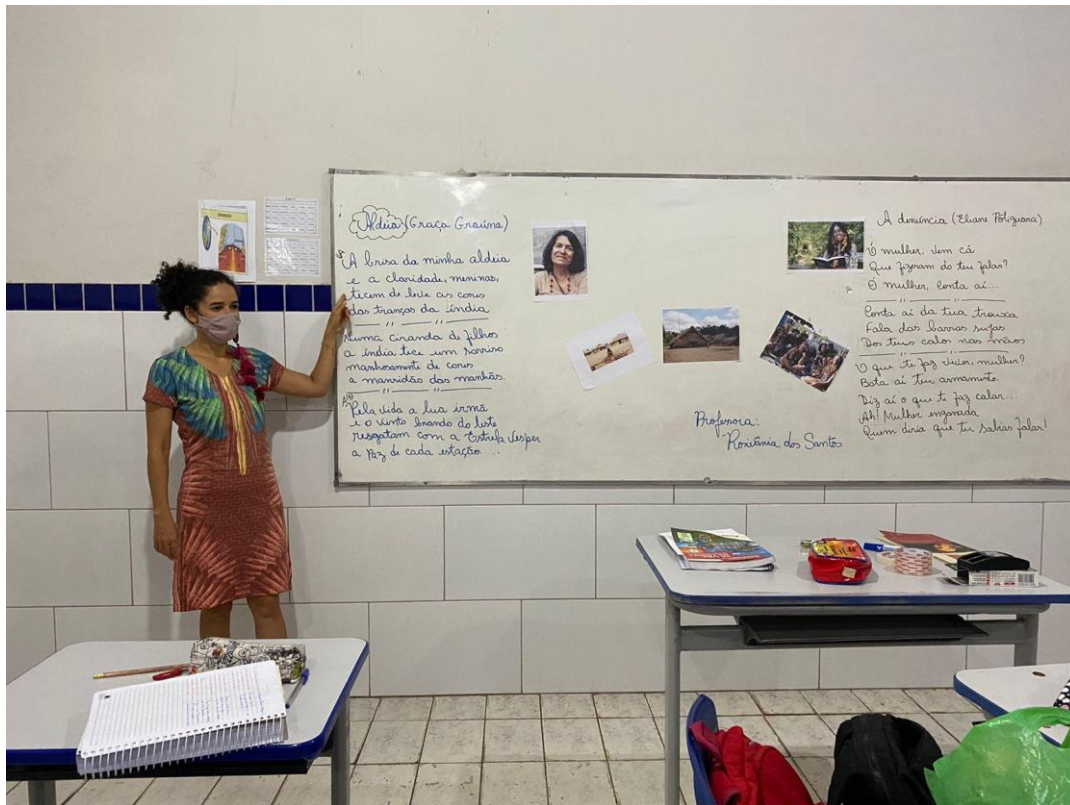 Aldeia (Graça Graúna)
A brisa da minha aldeia
e a claridade, meninas,
tecem de leve as cores
das tranças da índia
Numa ciranda de filhos
a índia tece um sorriso
manhosamente de cores
a mansidão das manhãs.
Pela vida a lua irmã
e o vento brando do leste
resgatam com a Estrela Vésper
a Paz de cada estação...
Professora:
Roxitânia dos Santos
A denúncia (Eliane Potiguara)
Ó mulher, vem cá
Que fizeram do teu falar?
Ó mulher, conta aí...
Conta aí da tua trouxa
Fala das barras sujas
Dos teus calos nas mãos
O que te faz viver, mulher?
Bota aí teu armamento.
Diz aí o que te faz calar...
Ah! Mulher enganada
Quem diria que tu sabias falar!